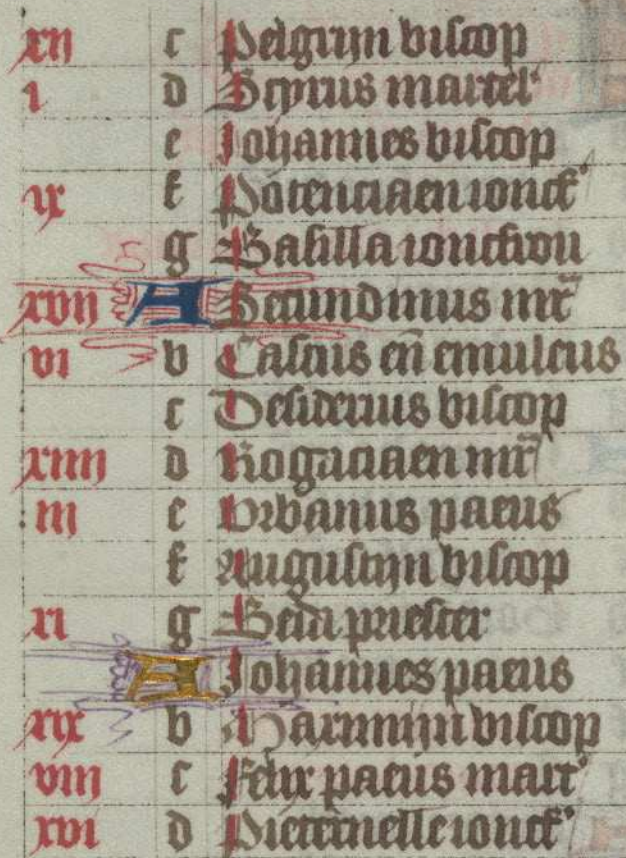 xij c Pelgrijn biscop
i d Scyrus martel'
e Johannes biscop
ix f Potenciaen ionck'
g Basilla ionckvou
xvij A Secundinus mr̄
vi b Castus en̄ emulcus
c Desiderius biscop
xiiij d Rogaciaen mr̄
iij e Urbanus paeus
f Augustijn biscop
xi g Beda priester
A Johannes paeus
xix b Maximijn biscop
viij c Felix paeus mart'
xvi d Pieternelle ionck'